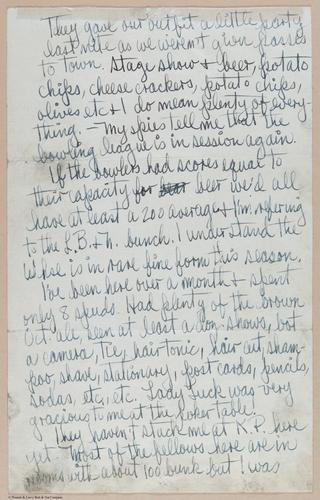 They gave our outfit a little party
last nite as we weren't given passes
to town. Stage show & beer, potato
chips, cheese crackers, potato chips,
olives etc & I do mean plenty of every-
thing. – My spies tell me that the
bowling league is in session again.
If the bowlers had scores equal to
their capacity for beer we'd all
have at least a 200 average & I'm refering
to the L.B. & Th. bunch. I understand the
is in rare fine form this season.
I've been here over a month & spent
only 8 spuds. Had plenty of the brown
Oct. ale, seen at least a doz. shows, bot
a camera, tie, hair tonic, hair cut, sham-
poo, shave, stationary, post cards, pencils,
sodas, etc, etc. Lady Luck was very
gracious to me at the poker table.
They haven't stuck me at K.P. here
yet. Most of the fellows here are in
rooms with about 100 bunk but I was